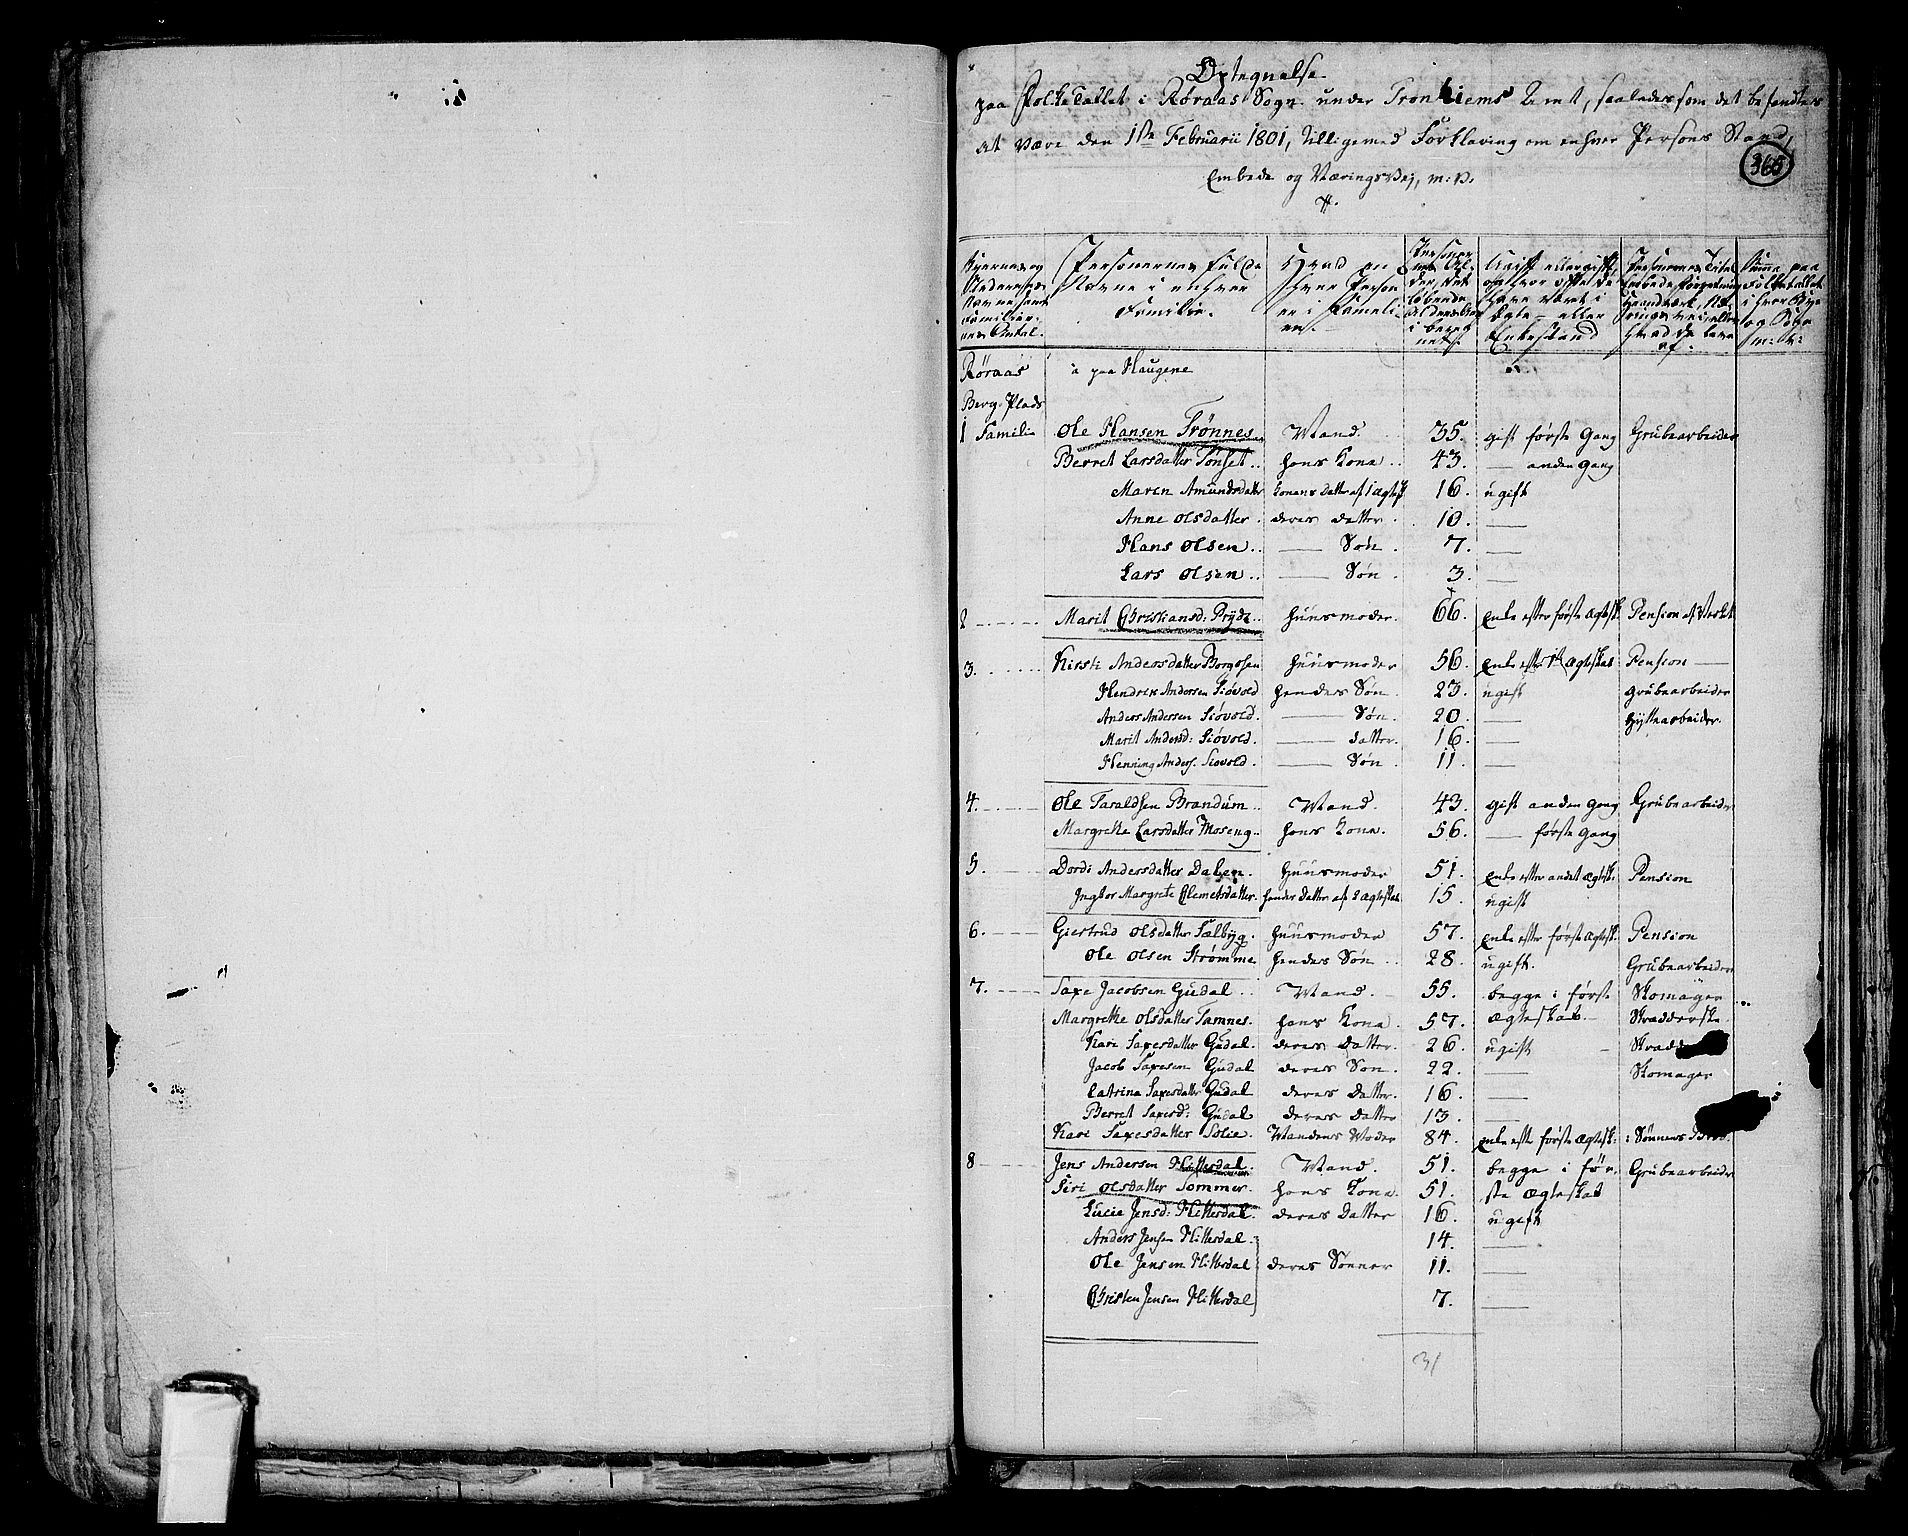 Optegnelse
paa Folke Tallet i Røraas Sogn under Tronhiems Amt, saaledes som det befandtes
at være den 1ste Februarii 1801, tilligemed Forklaring om enhver Persons Stand,
Embede og Næringsvej, m: v.
365
Byernes og Stædernes Navne samt Familiernes Antal.
Personernes fulde Navne i enhver Familie.
Hvad en hver Person er i Familien.
Personernes Alder, det løbende Alders Aar iberegnet.
Ugift eller gift, og hvor ofte de have været i Ægte- eller Enkestand
Personernes Titel Embede Forretning Haandværk Nærings vei, eller hvad de leve af:
Summa paa Folketallet i hver Bye og Sogn m: v:
Røraas a paa Haugene
Berg-Plads
1 Familie Ole Hansen Trønnes Mand. 35. gift første Gang Grubearbeider
Berret Larsdatter Tønset.. hans Kone .. 43. — anden Gang
Maren Amundsdatter Konens Datter af 1 Ægtesk 16. ugift
Anne Olsdatter. deres Datter. 10. —
Hans Olsen.. — Søn. 7. —
Lars Olsen.. — Søn. 3. —
2 Marit Christiansd: Prydz.. Huusmoder. 66. Enke efter første Ægtesk. Pension af Verket
3. Kirsti Andersdatter Borgosen Huusmoder 56. Enke efter 1st Ægteskab Pension —
Hendrik Andersen Siøvold hendes Søn. 23. ugift Grubearbeider
Anders Andersen Siøvold. — Søn. 20. — Hyttearbeider.
Marit Andersd: Siøvold. — Datter. 16. —
Henning Anders. Siøvold. — Søn. 11. —
4. Ole Taraldsen Brandum.. Mand. 43. gift anden Gang Grubearbeider
Margrethe Larsdatter Moseng.. hans Kone. 56. — første Gang
5. Dordi Andersdatter Dalen. Huusmoder 51. Enke efter andet Ægtesk. Pension
Ingbor Margrete Clemetsdatter. hendes Datter af 2 Ægteskab 15. ugift
6. Giertrud Olsdatter Sælbyg. Huusmoder 57. Enke efter første Ægtesk. Pension
Ole Olsen Strømme hendes Søn .. 28. ugift. Grubearbeider
7. Saxe Jacobsen Gudal .. Mand. 55. begge i første Skomager
Margrethe Olsdatter Tamnes. hans Kone. 57. Ægteskab. Skrædderske
Kari Saxesdatter Gudal. deres Datter. 26. ugift
Jacob Saxesen Gudal deres Søn. 22. — Skomager
Catrina Saxesdatter Gudal deres Datter. 16. —
Berret Saxesd: Gudal deres Datter 13. —
Kari Saxesdatter Solie. Mandens Moder 84. Enke efter første Ægtesk: i Sønnens Brød.
8 Jens Andersen Hitterdal. Mand. 51. begge i før- Grubearbeider
Siri Olsdatter Sommer. hans Kone. 51. ste Ægteskab
Lucie Jensd: Hitterdal. deres Datter 16. ugift
Anders Jensen Hitterdal. 14. —
Ole Jensen Hitterdal deres Sønner 11. —
Christen Jensen Hitterdal 7. —
31